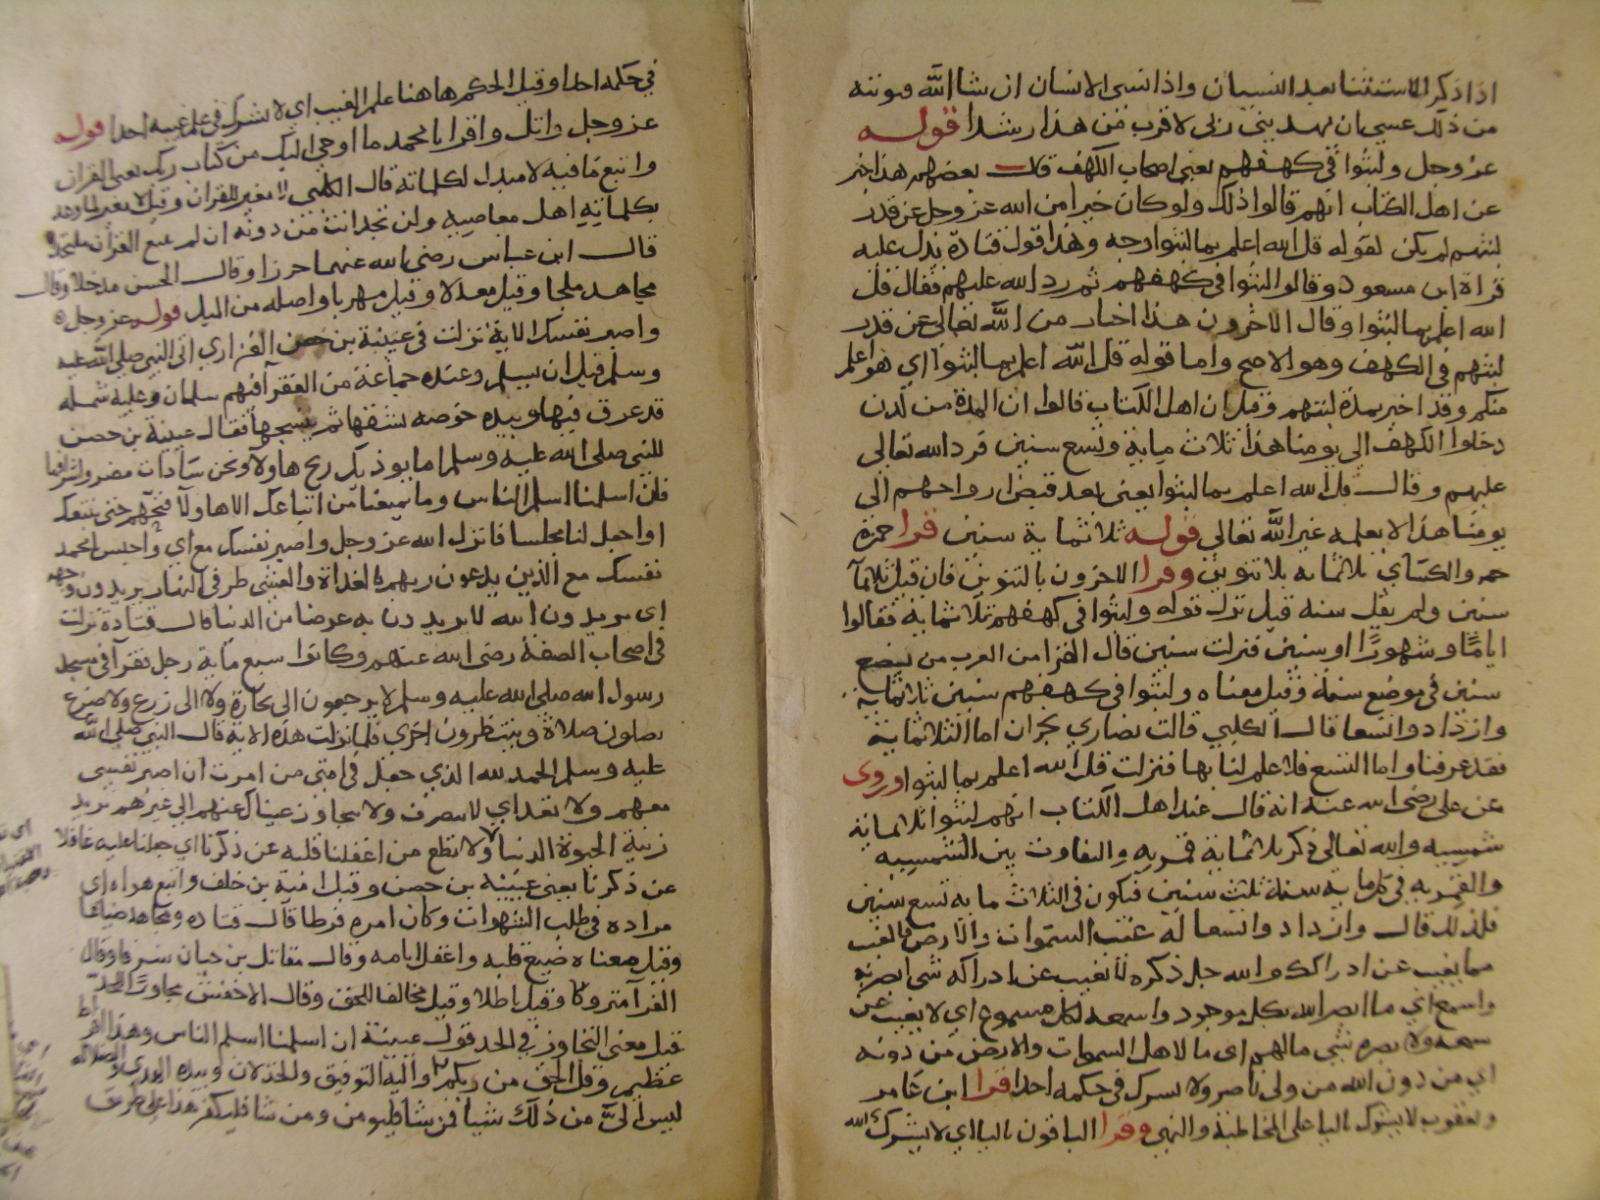 اذا ذكر الاستثنا بعد النسيان واذا نسى الانسان ان شا الله فتوبته
من ذلك عسى ان يهديني ربى لاقرب من هذا رشدا قوله
عز وجل ولبثوا في كهفهم يعنى اصحاب الكهف قال بعضهم هذا خبر
عن اهل الكتاب انهم قالوا ذلك ولو كان خبرا من الله عز وجل عن قدر
لبثهم لم يكن لقوله قل الله اعلم بما لبثوا وجه وهذا قول قتادة يدل عليه
قراة ابن مسعود وقالوا لبثوا في كهفهم ثم رد الله عليهم فقال قل
الله اعلم بما لبثوا وقال الاخرون هذا اخبار من الله تعالى عن قدر
لبثهم في الكهف وهو الاصح واما قوله قل الله اعلم بما لبثوا اي هو اعلم
منكم وقد اخبر بمدة لبثهم وقيل ان اهل الكتاب قالوا ان المدة من لدن
دخلوا الكهف الى يومنا هذا ثلاث ماية وتسع سنين فرد الله تعالى
عليهم وقال قل الله اعلم بما لبثوا يعنى بعد قبض ارواحهم الى
يومنا هذا لا يعلمه غير الله تعالى قوله ثلاثماية سنين قرا حمزة
حمزه والكساي ثلاثمايه بلا تنوين وقرا الاخرون بالتنوين فان قيل ثلاثمآ
سنين ولم يقل سنة قيل نزل قوله ولبثوا في كهفهم ثلاثماية فقالوا
اياما وشهورا او سنين فنزلت سنين قال الفرا من العرب من يضع
سنين في موضع سنة وقيل معناه ولبثوا في كهفهم سنين ثلاثماية
وازدادوا تسعا قال الكلبي قالت نصاري نجران اما الثلاثماية
فقد عرفنا واما التسع فلا علم لنا بها فنزلت قل الله اعلم بما لبثوا وروى
عن على رضى الله عنه انه قال عند اهل الكتاب انهم لبثوا ثلاثماية
شمسيه والله تعالى ذكر ثلاثماية قمريه والتفاوت بين الشمسيه
والقمريه في كل مايه سنة ثلث سنين فيكون في الثلاث مايه تسع سنين
فلذلك قال وازدادوا تسعا له غيب السموات والارض فالغيب
مما يغيب عن ادراكك والله جل ذكره لا يغيب عن ادراكه شى ابصر به
واسمع اي ما ابصر الله بكل موجود واسمعه لكل مسموع اي لا يغيب عن
سمعه ولا بصره شي مالهم اى ما لاهل السموات والارض من دونه
اي من دون الله من ولى ناصر ولا يشرك في حكمه احدا قرا ابن عامر
ويعقوب لا تشرك بالتا على المخاطبة والنهى وقرا الباقون باليا اي لا يشرك الله
في حكمه احدا وقيل الحكم هاهنا علم الغيب اي لا يشرك في علم غيبه احدا قوله
عز وجل واتل واقرا يا محمد ما اوحى اليك من كتاب ربك يعنى القران
واتبع ما فيه لا مبدل لكلماته قال الكلبى لا مغير للقران وقيل لا مغير لما وعد
بكلماته اهل معاصيه ولن تجد انت من دونه ان لم تتبع القران ملتحدا
قال ابن عباس رضى الله عنهما حرزا وقال الحسن مدخلا وقال
مجاهد ملجا وقيل معدلا وقيل مهربا واصله من الميل قوله عز وجل
واصبر نفسك الاية نزلت في عيينة بن حصن الفزاري اتى النبي صلى الله عليه
وسلم قبل ان يسلم وعنده جماعة من الفقرآ فيهم سلمان وعليه شملة
قد عرق فيها وبيده خوصه يشقها ثم ينسجها فقال عيينة بن حصن
للنبي صلى الله عليه وسلم اما يوذيك ريح هاولا ونحن سادات مضر واشرافها
فان اسلمنا اسلم الناس وما يمنعنا من اتباعك الا هاولا فنحهم حتى نتبعك
او اجعل لنا مجلسا فانزل الله عز وجل واصبر نفسك مع اي واحبس يا محمد
نفسك مع الذين يدعون ربهم بالغداة والعشى طرفي النهار يريدون وجهه
اى يريدون الله لا يريدون به عرضا من الدنيا قال قتادة نزلت
في اصحاب الصفة رضى الله عنهم وكانوا سبع ماية رجل فقرآ في مسجد
رسول الله صلى الله عليه وسلم لا يرجعون الى تجارة ولا الى زرع ولا ضرع
يصلون صلاة وينتظرون اخرى فلما نزلت هذه الاية قال النبي صلى الله
عليه وسلم الحمد لله الذي جعل في امتى من امرت ان اصبر نفسى
معهم ولا تعد اي لا تصرف ولا تتجاوز عيناك عنهم الى غيرهم تريد
زينة الحيوة الدنيا ولا تطع من اغفلنا قلبه عن ذكرنا اي جعلنا عليه غافلا
عن ذكرنا يعنى عيينة بن حصن وقيل امية بن خلف واتبع هواه اى
مراده في طلب الشهوات وكان امره فرطا قال قتاده ومجاهد ضياعا
وقيل معناه ضيع قلبه واغفل ايامه وقال مقاتل بن حيان سرفا وقال
الفرآ متروكا وقيل باطلا وقيل مخالفا للحق وقال الاخفش مجاوزا للحد
قيل معنى التجاوز في الحد قول عيينة ان اسلمنا اسلم الناس وهذا افراط
عظيم وقل الحق من ربكم واليه التوفيق والخذلان وبيده الهدى والضلالة
ليس الىّ من ذلك شيا فمن شا فليومن ومن شا فليكفر هذا على طريق